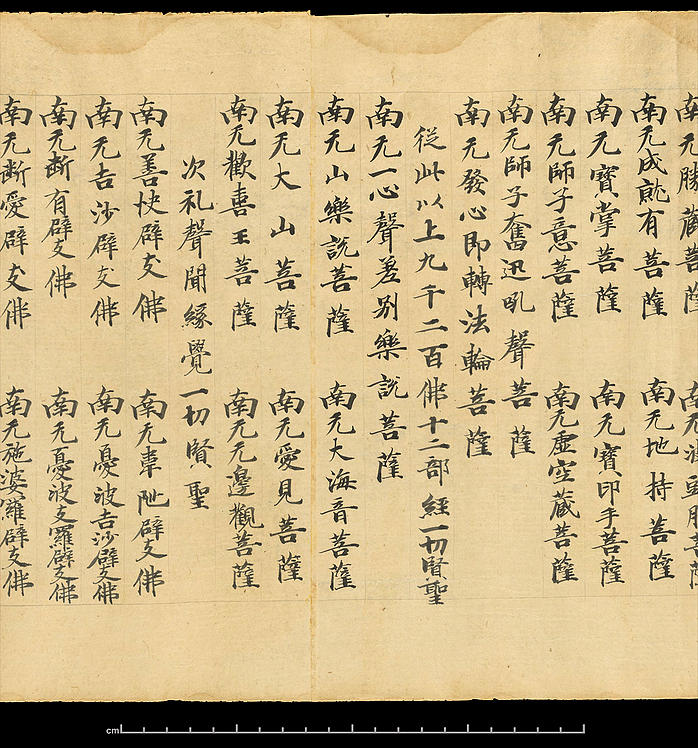 南无勝藏菩薩 南无
南无成就有菩薩 南无地持菩薩
南无寶掌菩薩 南无寶印手菩薩
南无師子意菩薩 南无虛空藏菩薩
南无師子奮迅吼聲菩薩
南无發心即轉法輪菩薩
從此以上九千二百佛十二部經一切賢聖
南无一心聲差別樂說菩薩
南无山樂說菩薩 南无大海音菩薩
南无大山菩薩 南无愛見菩薩
南无歡喜王菩薩 南无无邊觀菩薩
次礼聲聞緣覺一切賢聖
南无善快辟支佛 南无韋阤辟支佛
南无吉沙辟支佛 南无憂波吉沙辟支佛
南无断有辟支佛 南无憂波支羅辟支佛
南无断愛辟支佛 南无施婆羅辟支佛
cm